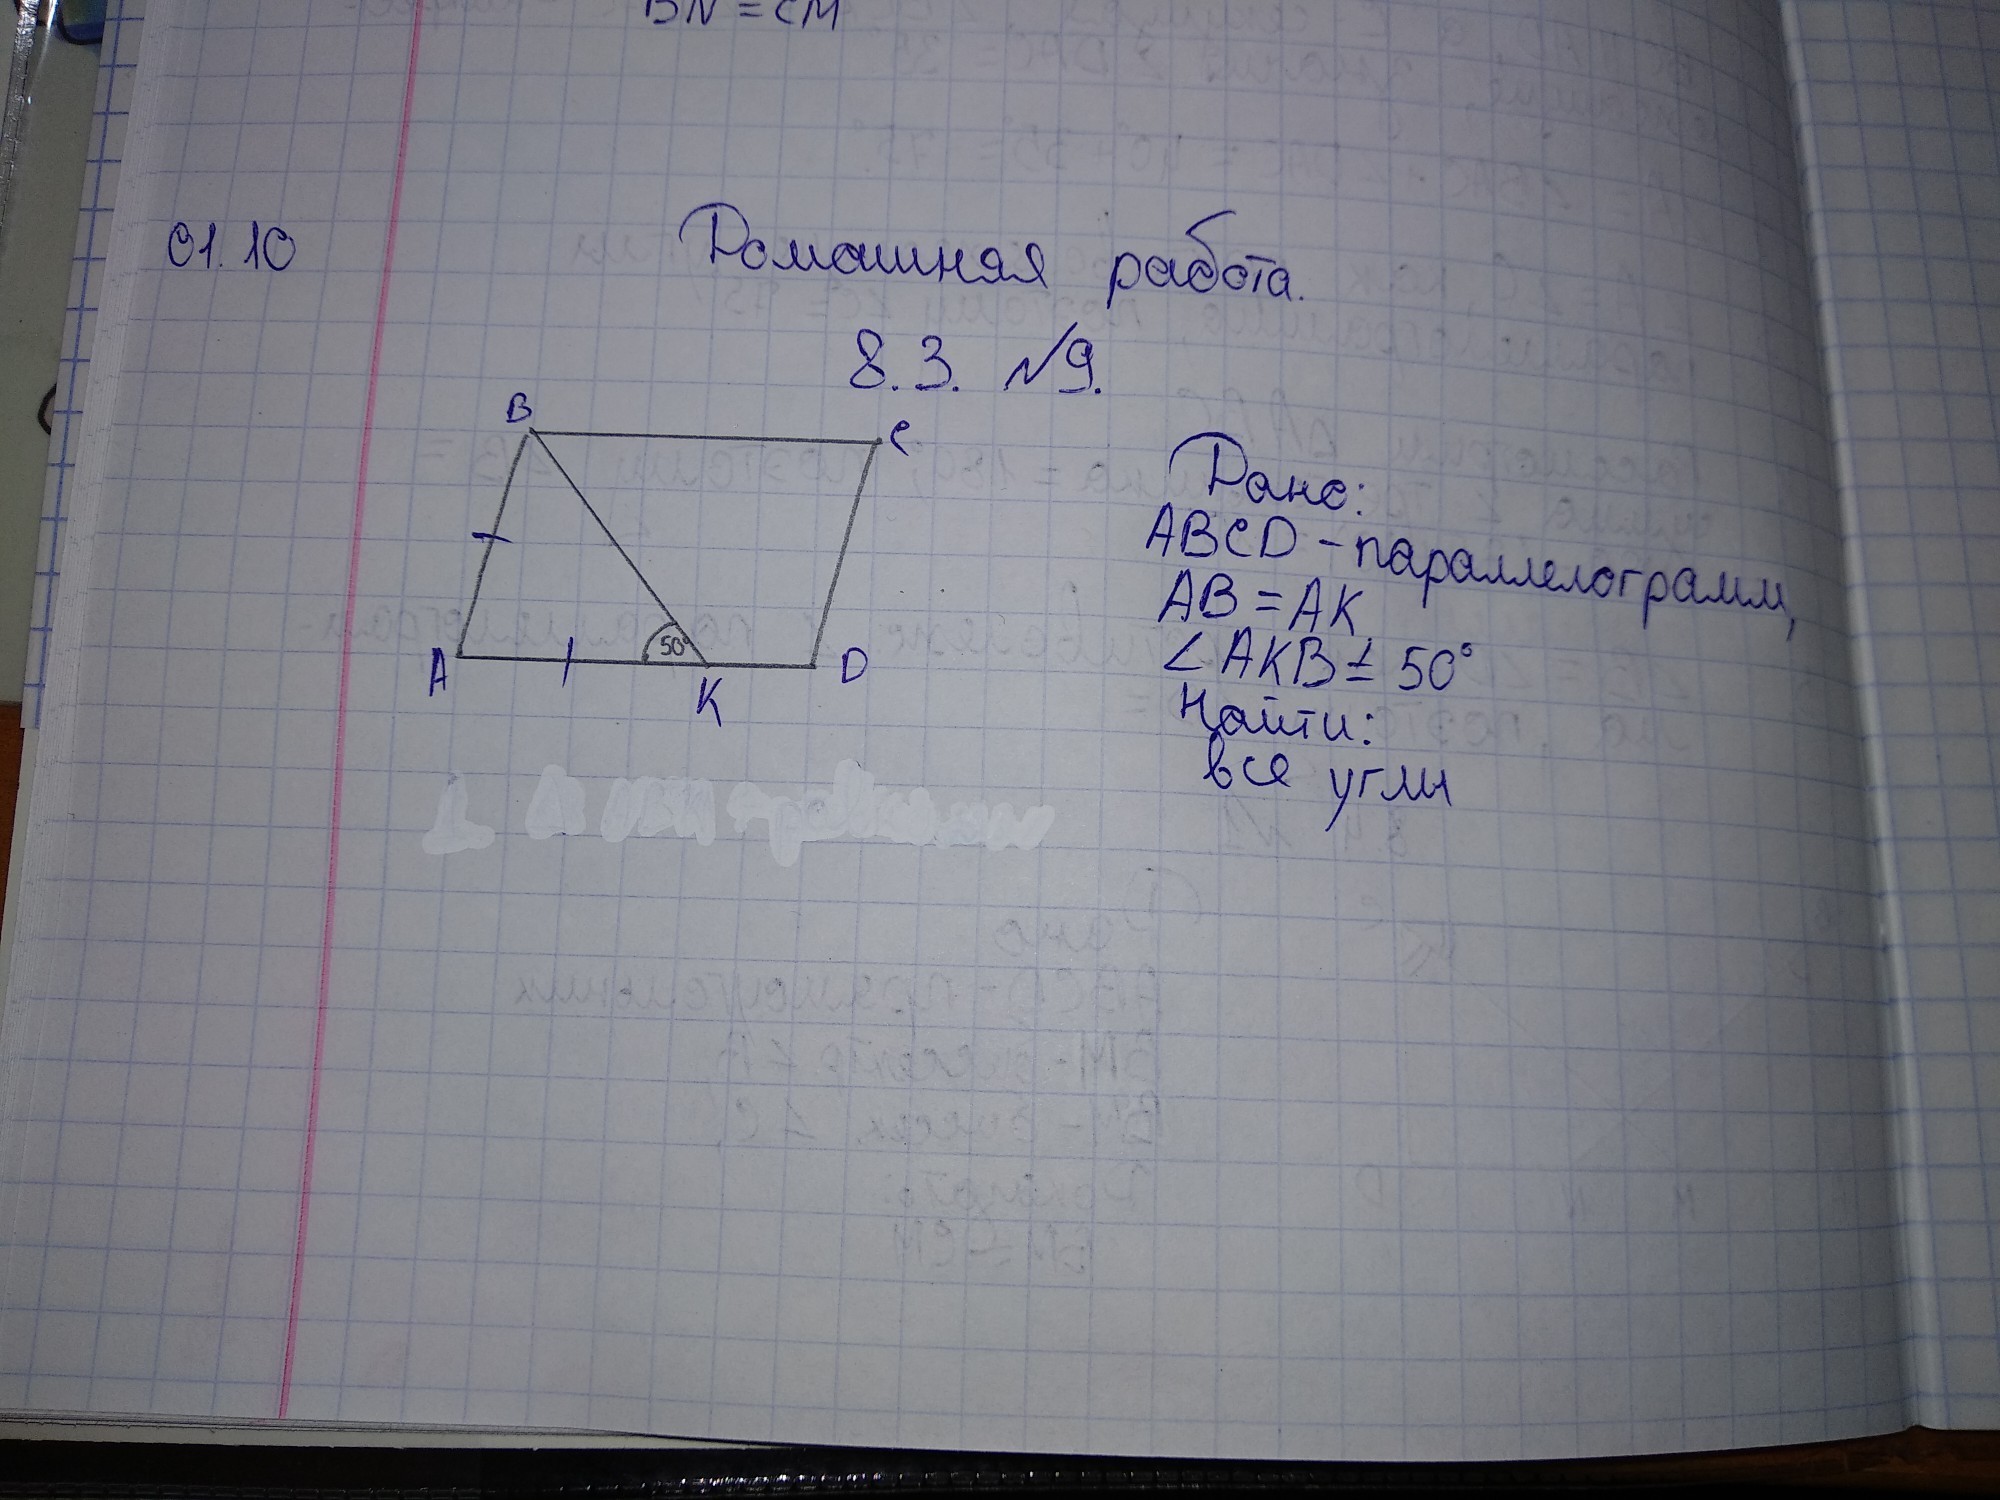 BN = CM
01.10 Домашняя работа.
8.3. №9.
B
C
50°
A
K
D
Дано:
ABCD - параллелограмм,
AB = AK
∠AKB = 50°
Найти:
все углы